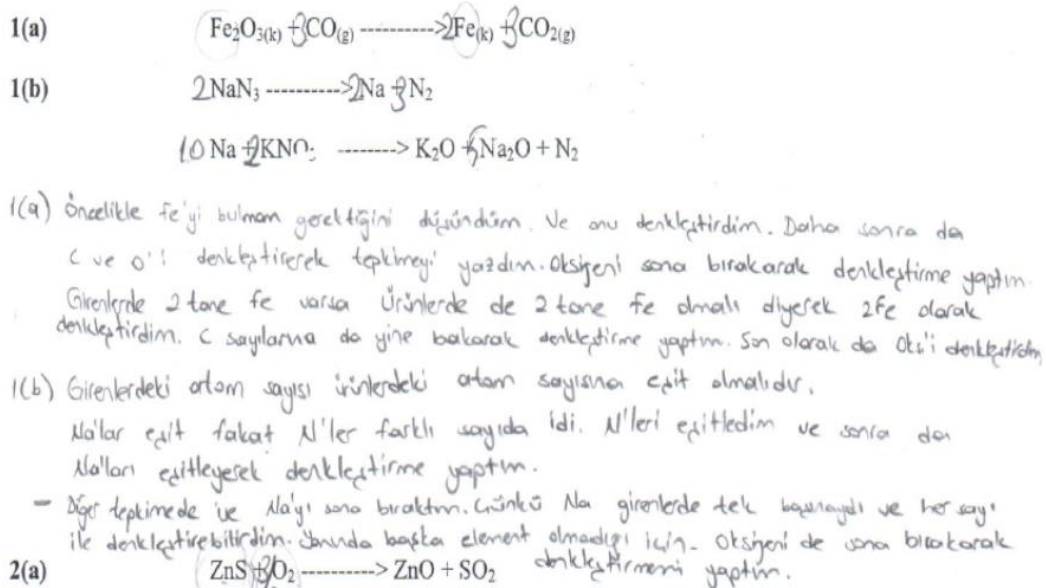 1(a) Fe₂O₃(k) + 3CO(g) ----------->2Fe(k) + 3CO₂(g)
1(b) 2NaN₃ ----------->2Na + 3N₂
10 Na + 2KNO₃ --------> K₂O + 5Na₂O + N₂
1(a) Öncelikle Fe'yi bulmam gerektiğini düşündüm. Ve onu denkleştirdim. Daha sonra da
C ve O'i denkleştirerek tepkimeyi yazdım. Oksijeni sona bırakarak denkleştirme yaptım.
Girenlerde 2 tane Fe varsa Ürünlerde de 2 tane Fe olmalı diyerek 2Fe olarak
denkleştirdim. C sayılarına da yine bakarak denkleştirme yaptım. Son olarak da Oks'i denkleştirdim
1(b) Girenlerdeki atom sayısı ürünlerdeki atom sayısına eşit olmalıdır.
Na'lar eşit fakat N'ler farklı sayıda idi. N'leri eşitledim ve sonra da
Na'ları eşitleyerek denkleştirme yaptım.
- Diğer tepkimede ise Na'yı sona bıraktım. Çünkü Na girenlerde tek başınaydı ve her sayı
ile denkleştirebilirdim. Yanında başka element olmadığı için. Oksijeni de sona bırakarak
denkleştirmemi yaptım.
2(a) ZnS + O₂ -----------> ZnO + SO₂